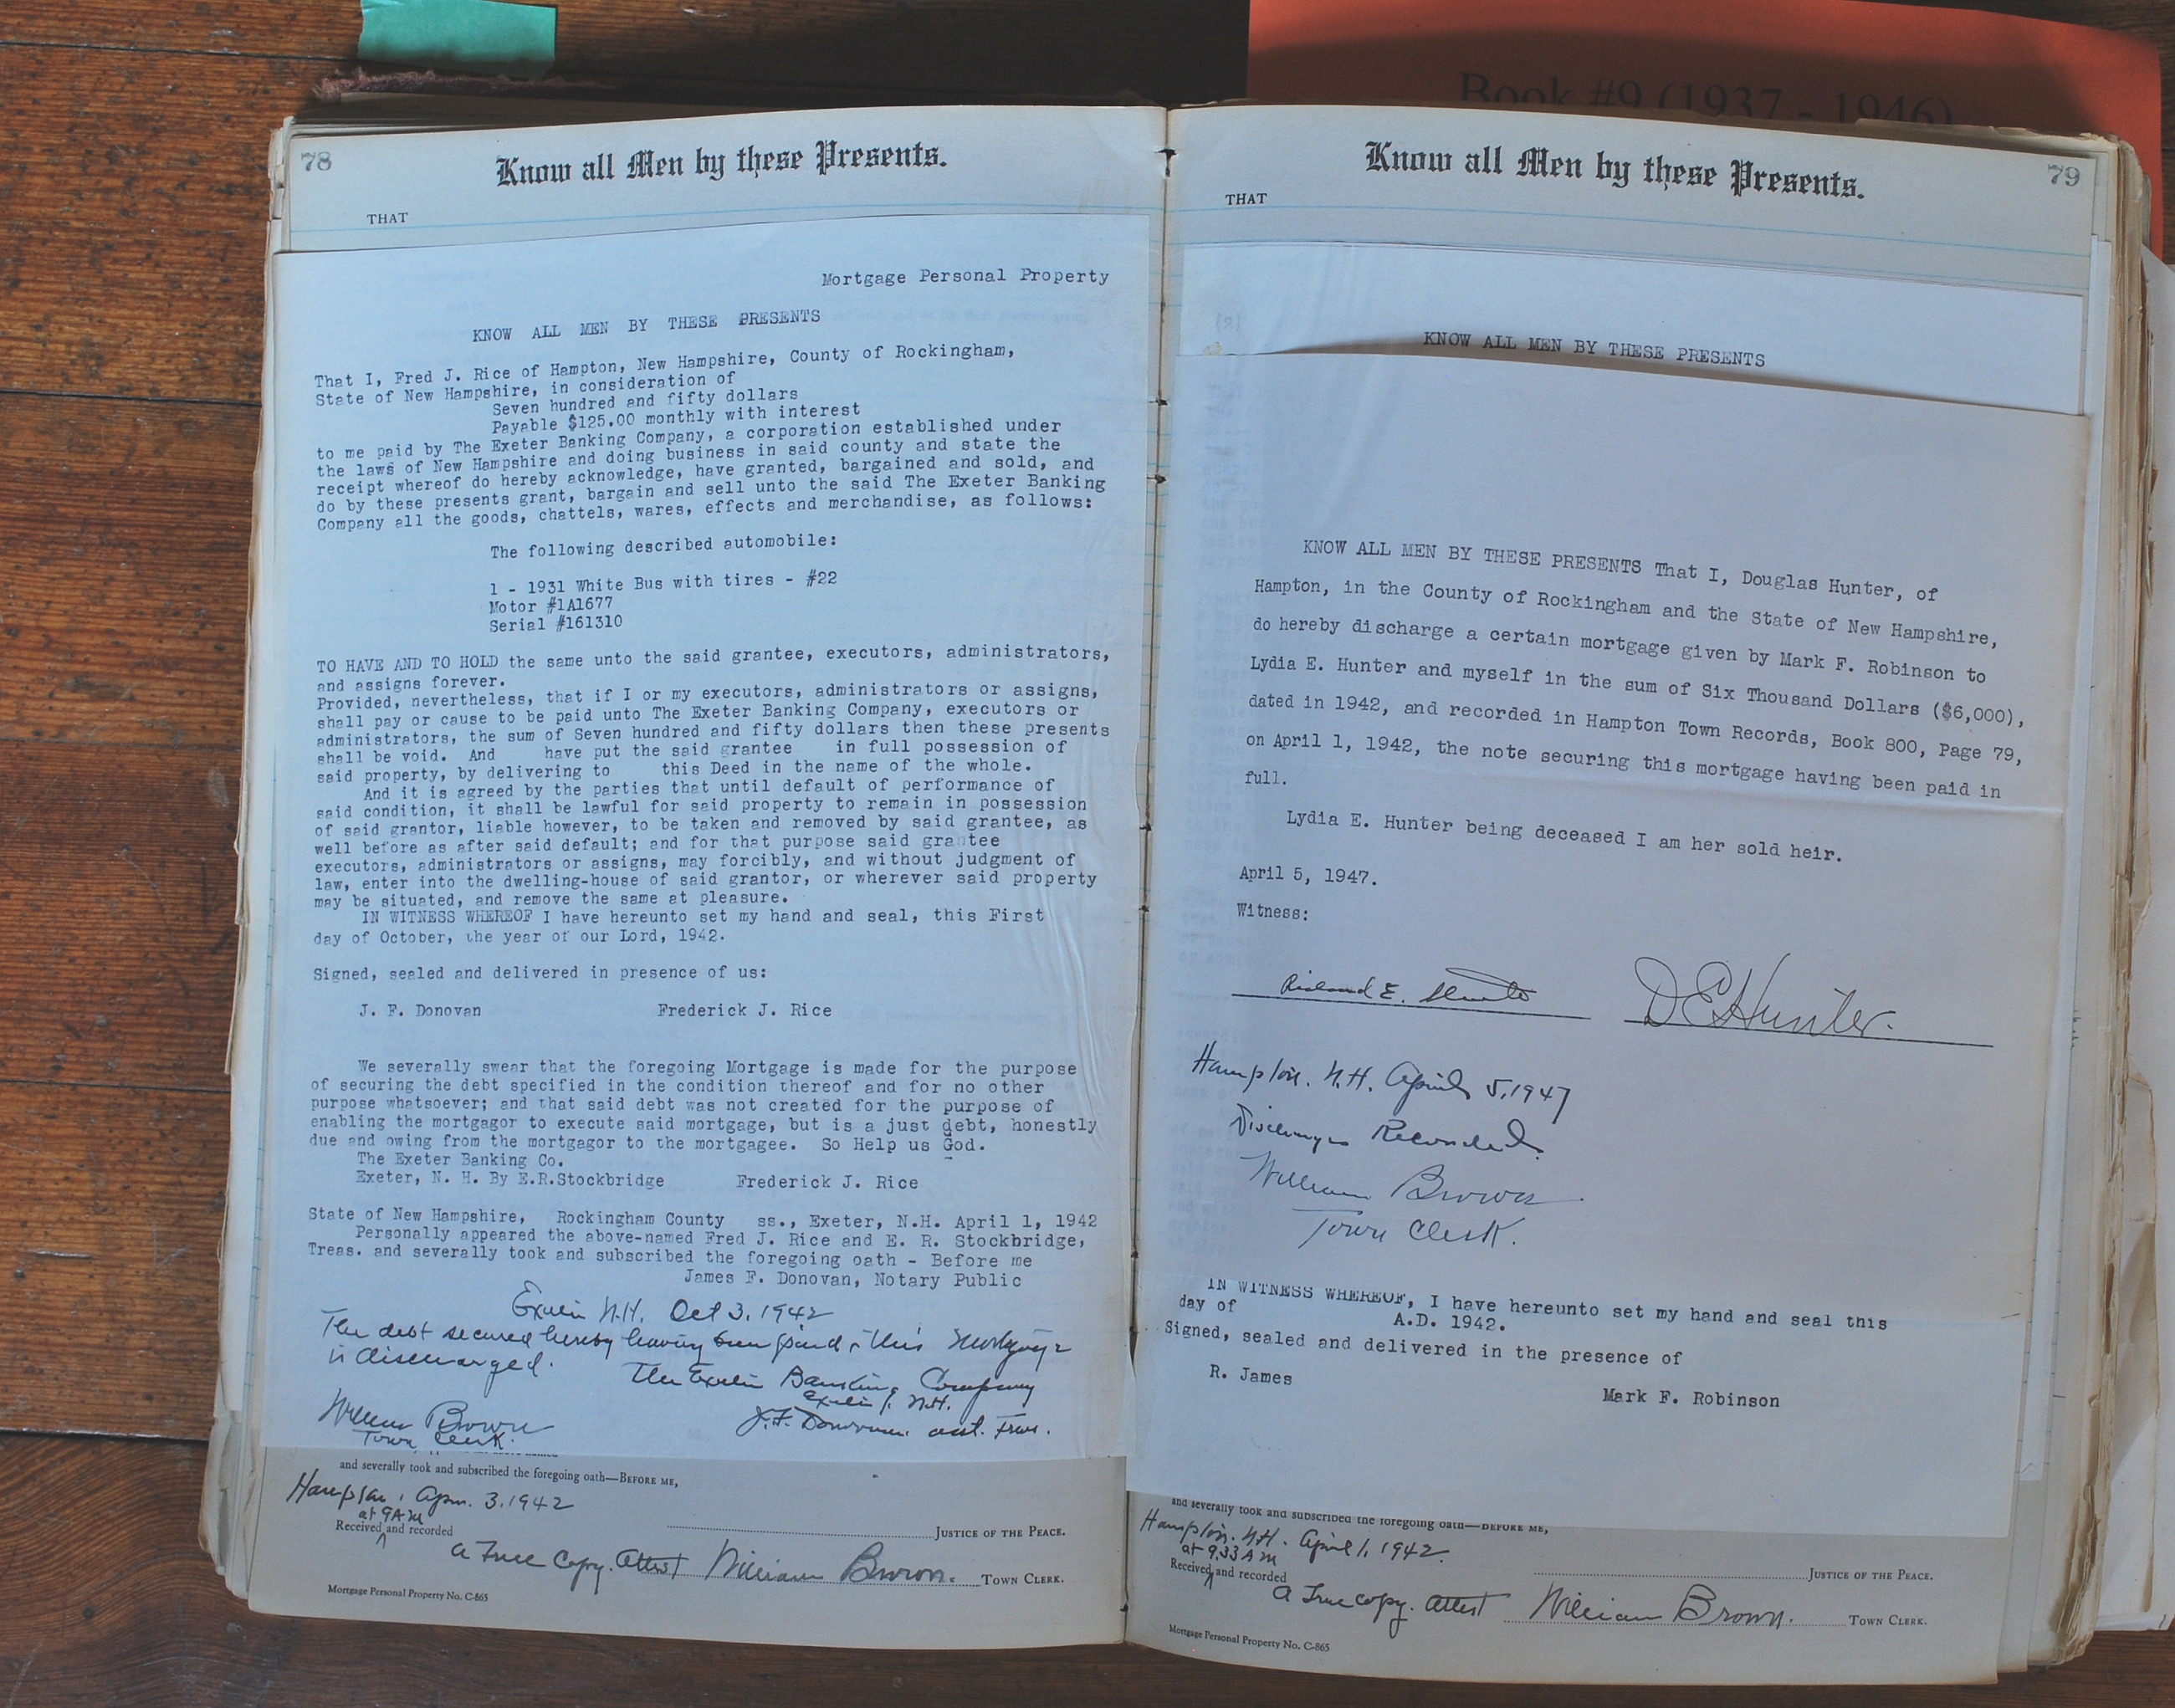 Book #9 (1937 - 1946)
78
Know all Men by these Presents.
THAT
Mortgage Personal Property
KNOW ALL MEN BY THESE PRESENTS
That I, Fred J. Rice of Hampton, New Hampshire, County of Rockingham,
State of New Hampshire, in consideration of
Seven hundred and fifty dollars
Payable $125.00 monthly with interest
to me paid by The Exeter Banking Company, a corporation established under
the laws of New Hampshire and doing business in said county and state the
receipt whereof do hereby acknowledge, have granted, bargained and sold, and
do by these presents grant, bargain and sell unto the said The Exeter Banking
Company all the goods, chattels, wares, effects and merchandise, as follows:
The following described automobile:
1 - 1931 White Bus with tires - #22
Motor #1A1677
Serial #161310
TO HAVE AND TO HOLD the same unto the said grantee, executors, administrators,
and assigns forever.
Provided, nevertheless, that if I or my executors, administrators or assigns,
shall pay or cause to be paid unto The Exeter Banking Company, executors or
administrators, the sum of Seven hundred and fifty dollars then these presents
shall be void. And have put the said grantee in full possession of
said property, by delivering to this Deed in the name of the whole.
And it is agreed by the parties that until default of performance of
said condition, it shall be lawful for said property to remain in possession
of said grantor, liable however, to be taken and removed by said grantee, as
well before as after said default; and for that purpose said grantee
executors, administrators or assigns, may forcibly, and without judgment of
law, enter into the dwelling-house of said grantor, or wherever said property
may be situated, and remove the same at pleasure.
IN WITNESS WHEREOF I have hereunto set my hand and seal, this First
day of October, the year of our Lord, 1942.
Signed, sealed and delivered in presence of us:
J. F. Donovan Frederick J. Rice
We severally swear that the foregoing Mortgage is made for the purpose
of securing the debt specified in the condition thereof and for no other
purpose whatsoever; and that said debt was not created for the purpose of
enabling the mortgagor to execute said mortgage, but is a just debt, honestly
due and owing from the mortgagor to the mortgagee. So Help us God.
The Exeter Banking Co.
Exeter, N. H. By E.R.Stockbridge Frederick J. Rice
State of New Hampshire, Rockingham County ss., Exeter, N.H. April 1, 1942
Personally appeared the above-named Fred J. Rice and E. R. Stockbridge,
Treas. and severally took and subscribed the foregoing oath - Before me
James F. Donovan, Notary Public
Exeter N.H. Oct 3, 1942
The debt secured hereby having been paid, this Mortgage
is discharged.
The Exeter Banking Company
Exeter, N.H.
J.F. Donovan. asst. Treas.
William Brown
Town Clerk.
and severally took and subscribed the foregoing oath—BEFORE ME,
Hampton, Apr. 3. 1942
at 9 AM
Received and recorded
JUSTICE OF THE PEACE.
A True Copy. Attest William Brown. TOWN CLERK.
Mortgage Personal Property No. C-865
79
Know all Men by these Presents.
THAT
(2)
KNOW ALL MEN BY THESE PRESENTS
KNOW ALL MEN BY THESE PRESENTS That I, Douglas Hunter, of
Hampton, in the County of Rockingham and the State of New Hampshire,
do hereby discharge a certain mortgage given by Mark F. Robinson to
Lydia E. Hunter and myself in the sum of Six Thousand Dollars ($6,000),
dated in 1942, and recorded in Hampton Town Records, Book 800, Page 79,
on April 1, 1942, the note securing this mortgage having been paid in
full.
Lydia E. Hunter being deceased I am her sold heir.
April 5, 1947.
Witness:
Richard E. D E Hunter.
Hampton. N.H. April 5, 1947
Discharge Recorded.
William Brown
Town Clerk.
IN WITNESS WHEREOF, I have hereunto set my hand and seal this
day of A.D. 1942.
Signed, sealed and delivered in the presence of
R. James
Mark F. Robinson
and severally took and subscribed the foregoing oath—BEFORE ME,
Hampton. N.H. April 1, 1942.
at 9.33 AM
Received and recorded
JUSTICE OF THE PEACE.
A True Copy. Attest William Brown. TOWN CLERK.
Mortgage Personal Property No. C-865